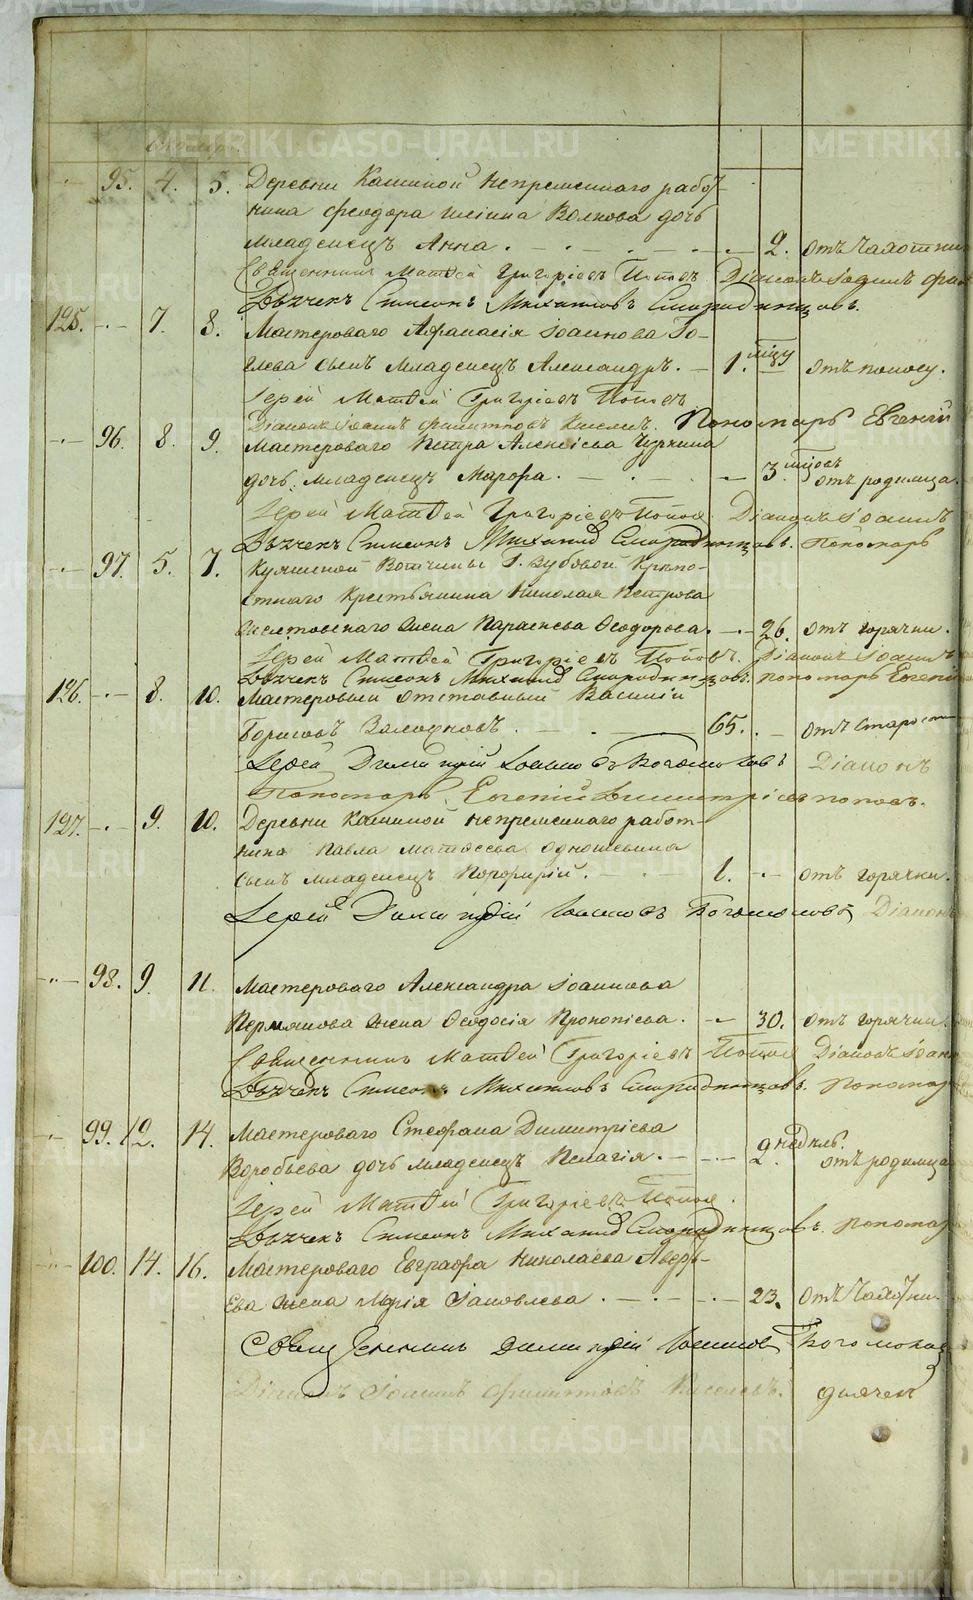 95. 4. 5. Деревни Кашиной непременнаго работ-
ника Феодора Волкова дочь
младенецъ Анна. 2. отъ чахотки
Священникъ Матѳей Григорьевъ Поповъ Діаконъ Іоаннъ
Дьячекъ Симеонъ Михайловъ Смородинцовъ.
125. 7. 8. Мастероваго Афанасія Іоаннова Го-
гл҃ева сынъ младенецъ Александръ. 1. м҃цу отъ поносу.
Іерей Матѳей Григорьевъ Поповъ
Діаконъ Іоаннъ Филиповъ Киселевъ. Пономарь Евгений
96. 8. 9. Мастероваго Петра Алексѣева
дочь младенецъ Марѳа. 3. м҃цовъ отъ родимца.
Іерей Матѳей Григорьевъ Поповъ Діаконъ Іоаннъ
Дьячекъ Симеонъ Михайловъ Смородинцовъ. Пономарь
97. 5. 7. Вотчины Г. Зубовой крѣпо-
стнаго крестьянина Николая Петрова
жена Параскева Ѳеодорова. 26. отъ горячки.
Іерей Матѳей Григорьевъ Поповъ. Діаконъ Іоаннъ
Дьячекъ Симеонъ Михайловъ Смородинцовъ. пономарь Евгеній
126. 8. 10. Мастеровый отставный Василій
Борисовъ 65. отъ старости
Іерей Димитрій Іоанновъ Богомоловъ Діаконъ
Пономарь Евгеній Димитріевъ Поповъ.
127. 9. 10. Деревни Кашиной непременнаго работ-
ника Павла Матѳеева
сынъ младенецъ Порфирій. 1. отъ горячки.
Іерей Димитрій Іоанновъ Богомоловъ Діаконъ
98. 9. 11. Мастероваго Александра Іоаннова
Пермякова жена Ѳеодосія Прокопіева. 30. отъ горячки.
Священникъ Матѳей Григорьевъ Поповъ Діаконъ Іоаннъ
Дьячекъ Симеонъ Михайловъ Смородинцовъ. Пономарь
99. 12. 14. Мастероваго Стефана Димитріева
Воробьева дочь младенецъ Пелагія. 2. недѣль. отъ родимца
Іерей Матѳей Григорьевъ Поповъ.
Дьячекъ Симеонъ Михайловъ Смородинцовъ. пономарь
100. 14. 16. Мастероваго Евграфа Николаева Аверь-
ева жена Марія Іаковлева. 23. отъ чахотки.
Священникъ Димитрій Іоанновъ Богомоловъ
Діаконъ Іоаннъ Филиповъ Киселевъ. дьячекъ
METRIKI.GASO-URAL.RU